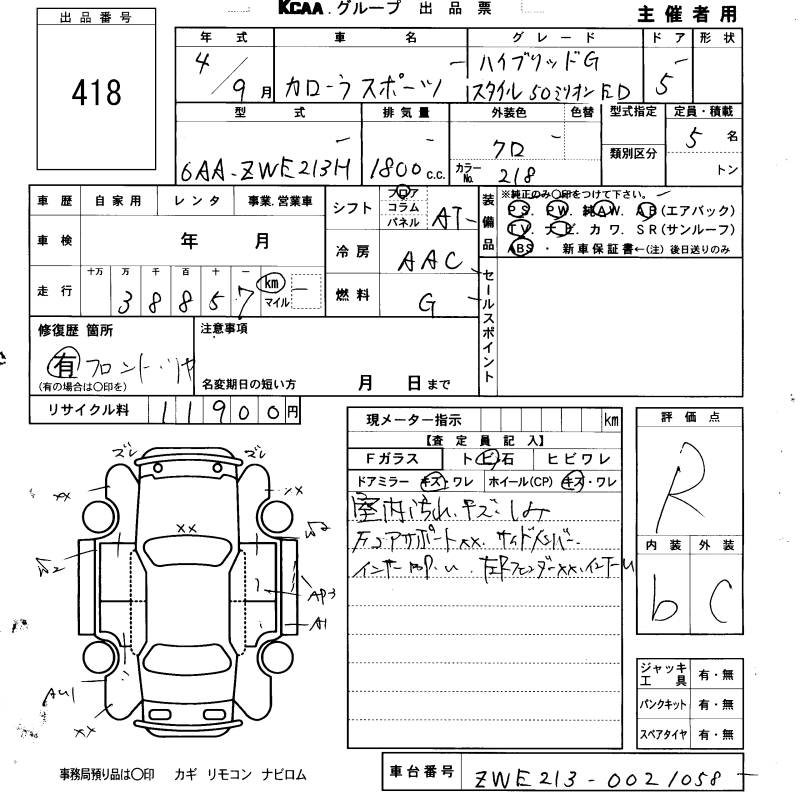 KCAA.グループ 出品票
主催者用
出品番号
418
年式 車名 グレード ドア 形状
4/9月 カローラ スポーツ ハイブリッドG 5
スタイル 50ミリオン ED
型式 排気量 外装色 色替 型式指定 定員・積載
類別区分
6AA-ZWE213H 1800c.c. クロ 5名
カラーNo. 218 トン
車歴 自家用 レンタ 事業.営業車
車検 年 月
走行 十万 万 千 百 十 一
38857 km マイル
シフト フロア コラム パネル AT
冷房 AAC
燃料 G
装備品
※純正のみ○印をつけて下さい。
PS. PW. 純AW. AB(エアバック)
TV. ナビ. カワ. SR(サンルーフ)
ABS ・ 新車保証書←(注) 後日送りのみ
セールスポイント
修復歴 箇所
有 フロント・リヤ
(有の場合は○印を)
注意事項
名変期日の短い方 月 日まで
リサイクル料 11900円
現メーター指示 km
【査定員記入】
Fガラス トビ石 ヒビワレ
ドアミラー キズ・ワレ ホイール(CP) キズ・ワレ
室内汚れ.キズ.しみ
コアサポートxx. サイドメンバー.
インナー U. 左Rフェンダーxx.インナーU
評価点
R
内装 外装
b C
ジャッキ工具 有・無
パンクキット 有・無
スペアタイヤ 有・無
ズレ ズレ
xx xx
xx
W2 W2
AP3
A1
AU1
xx
事務局預り品は○印 カギ リモコン ナビロム
車台番号 ZWE213-0021058